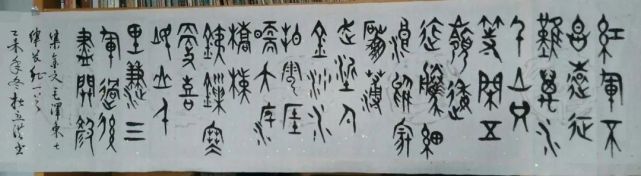 紅軍不
怕遠征
難萬水
千山只
等閒五
嶺逶
迤騰細
浪烏蒙
磅礴
走泥丸
金沙水
拍雲崖
暖大渡
橋橫
鐵索寒
更喜
岷山千
里雪三
軍過後
盡開顏
集金文毛澤東七
律長征一首
乙未年冬杜書